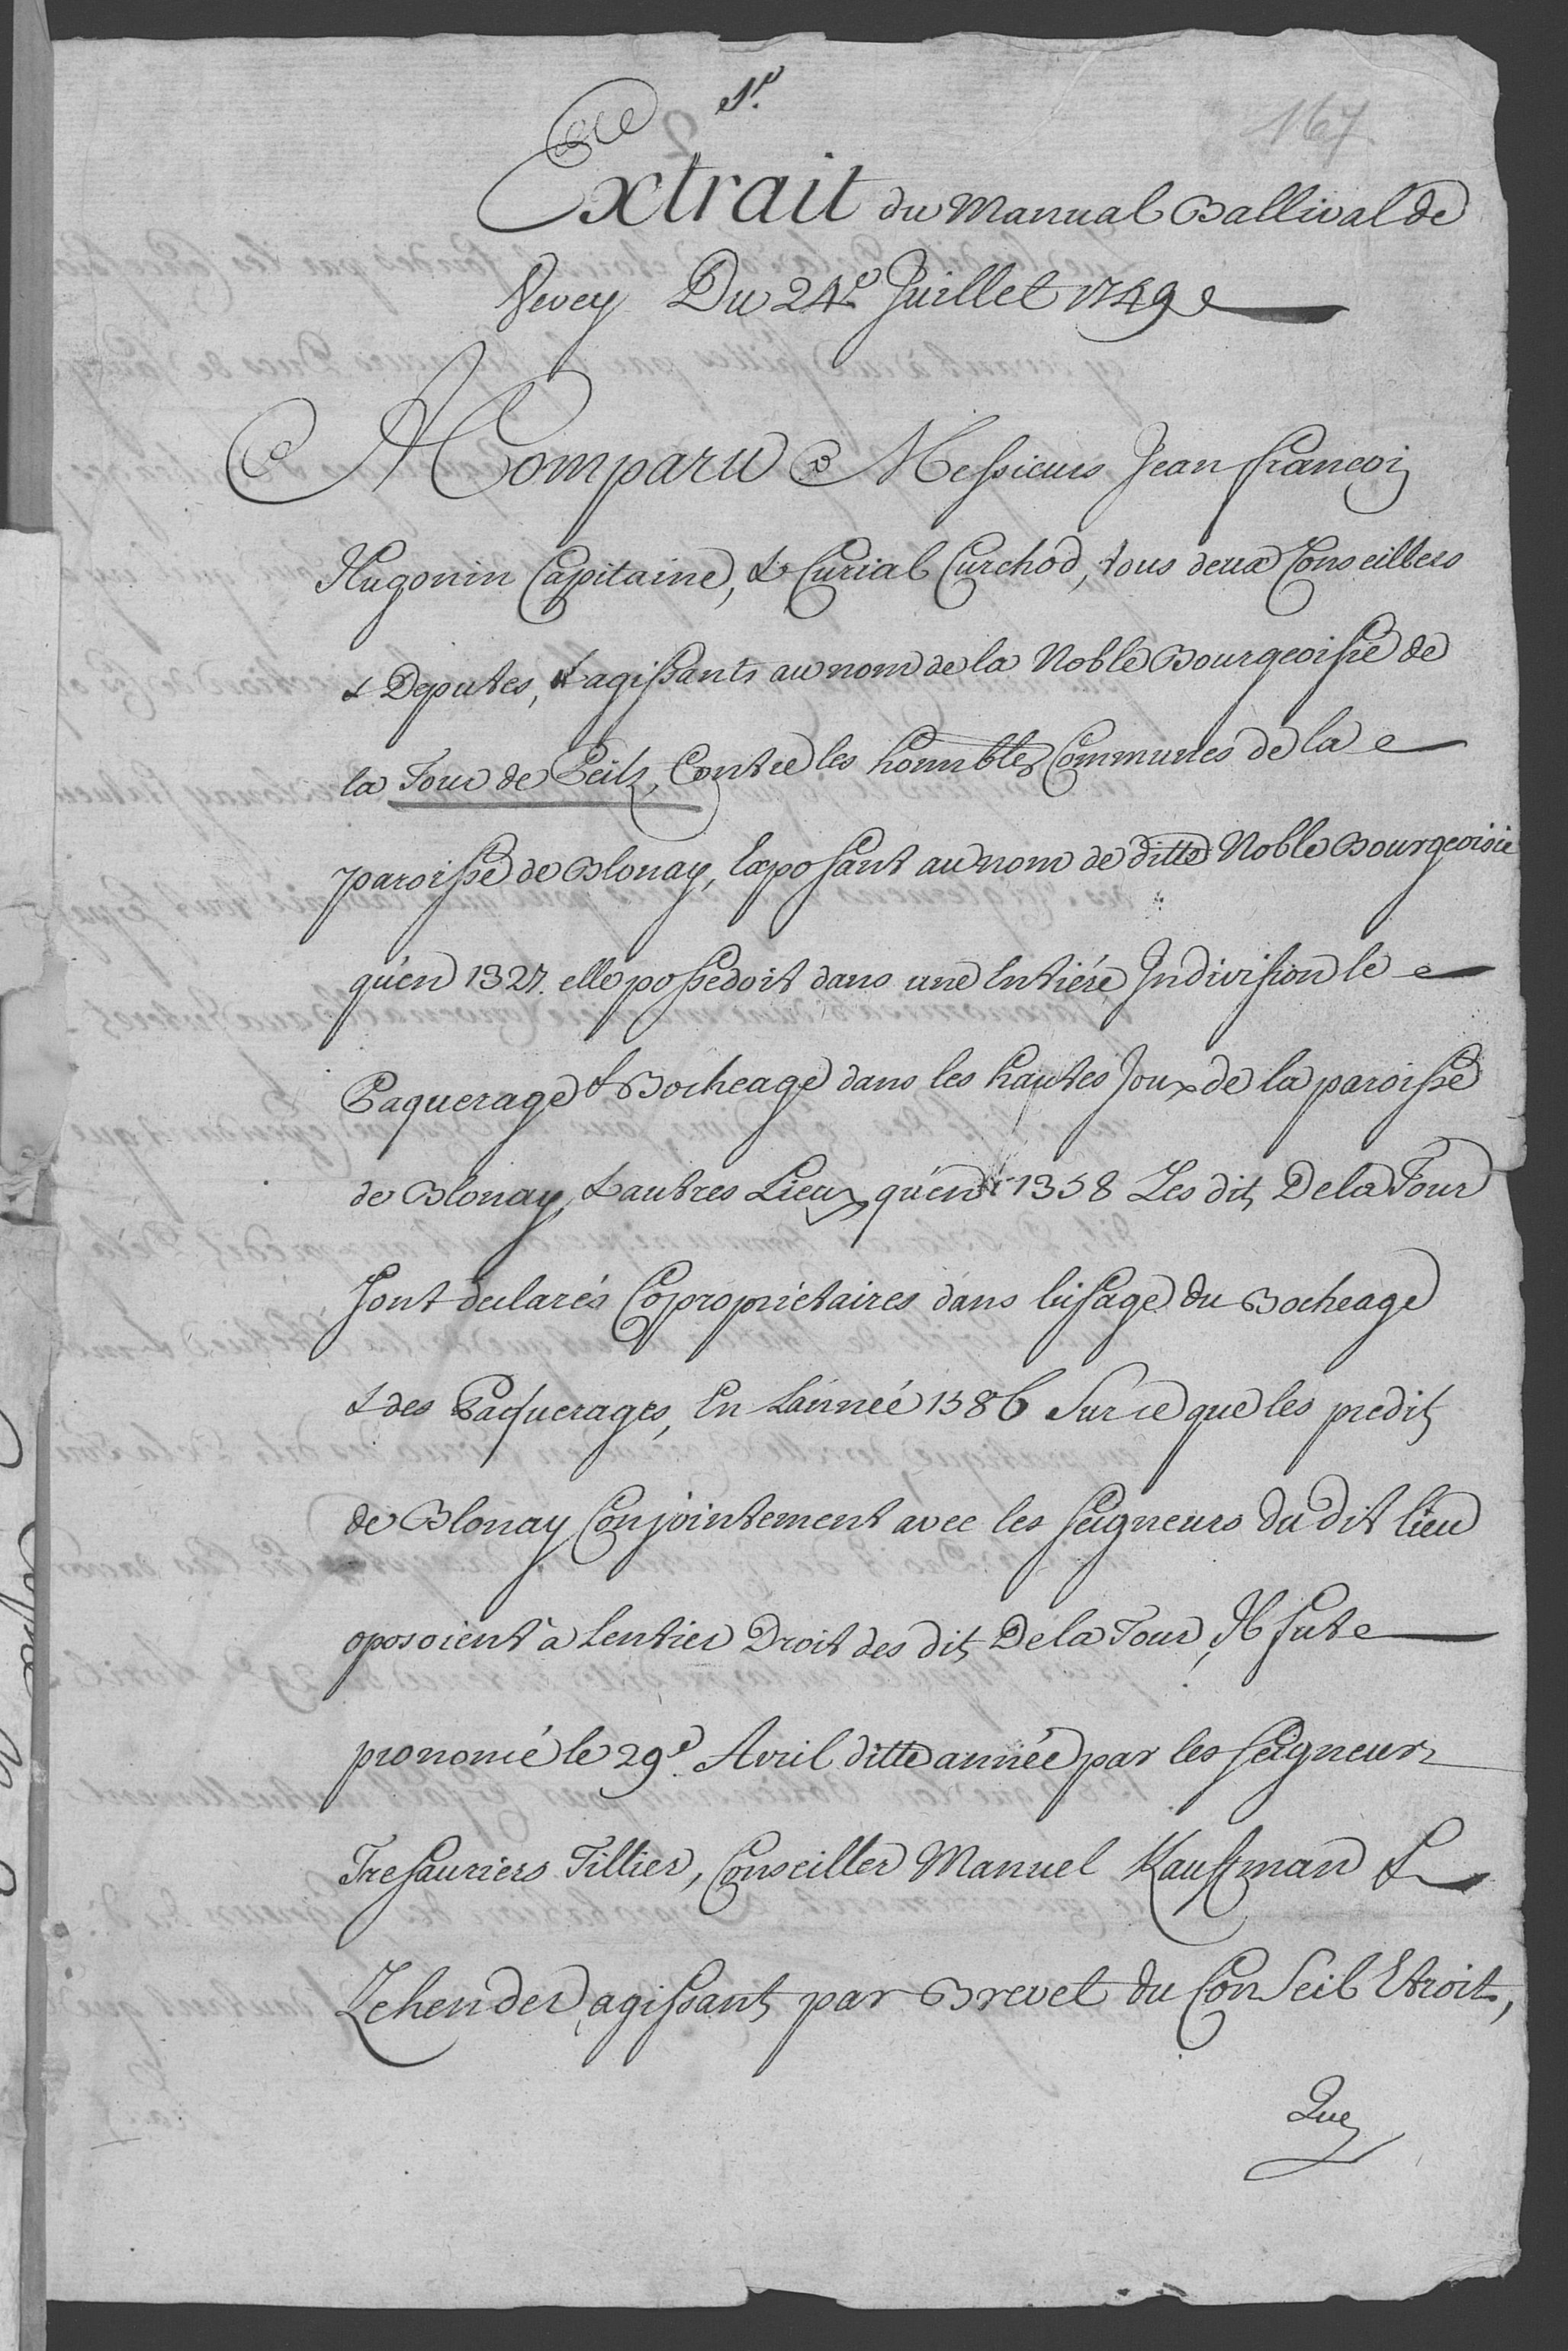 1.º
167
Extrait du Manual Ballival de
Vevey Du 24e Juillet 1749
A Comparu Messieurs Jean françois
Hugonin Capitaine, & Curial Curchod, tous deux Conseillers
& Deputes, & agissants au nom de la Noble Bourgeoisie de
la Tour de Peilz, Contre les honnbles Communes de la
paroisse de Blonay, Exposant au nom de ditte Noble Bourgeoisie
qu'en 1327. elle possedoit dans une Entiére Indivision le
Paquerage & Bocheage dans les hautes Joux de la paroisse
de Blonay, & autres Lieux, qu'en 1358 Les dits De la Tour
sont declarés Copropriétaires dans l'usage du Bocheage
& des Paquerages, En L'année 1586 Sur ce que les predits
de Blonay Conjointement avec les seigneurs du dit lieu
oposoient à Lentier Droit des dits De la Tour, Il fut
prononcé le 29e. Avril ditte année par les seigneurs
Tresauriers Tillier, Conseiller Manuel Kauffman &
Zehender, agissants par Brevet du Conseil Etroit,
Que